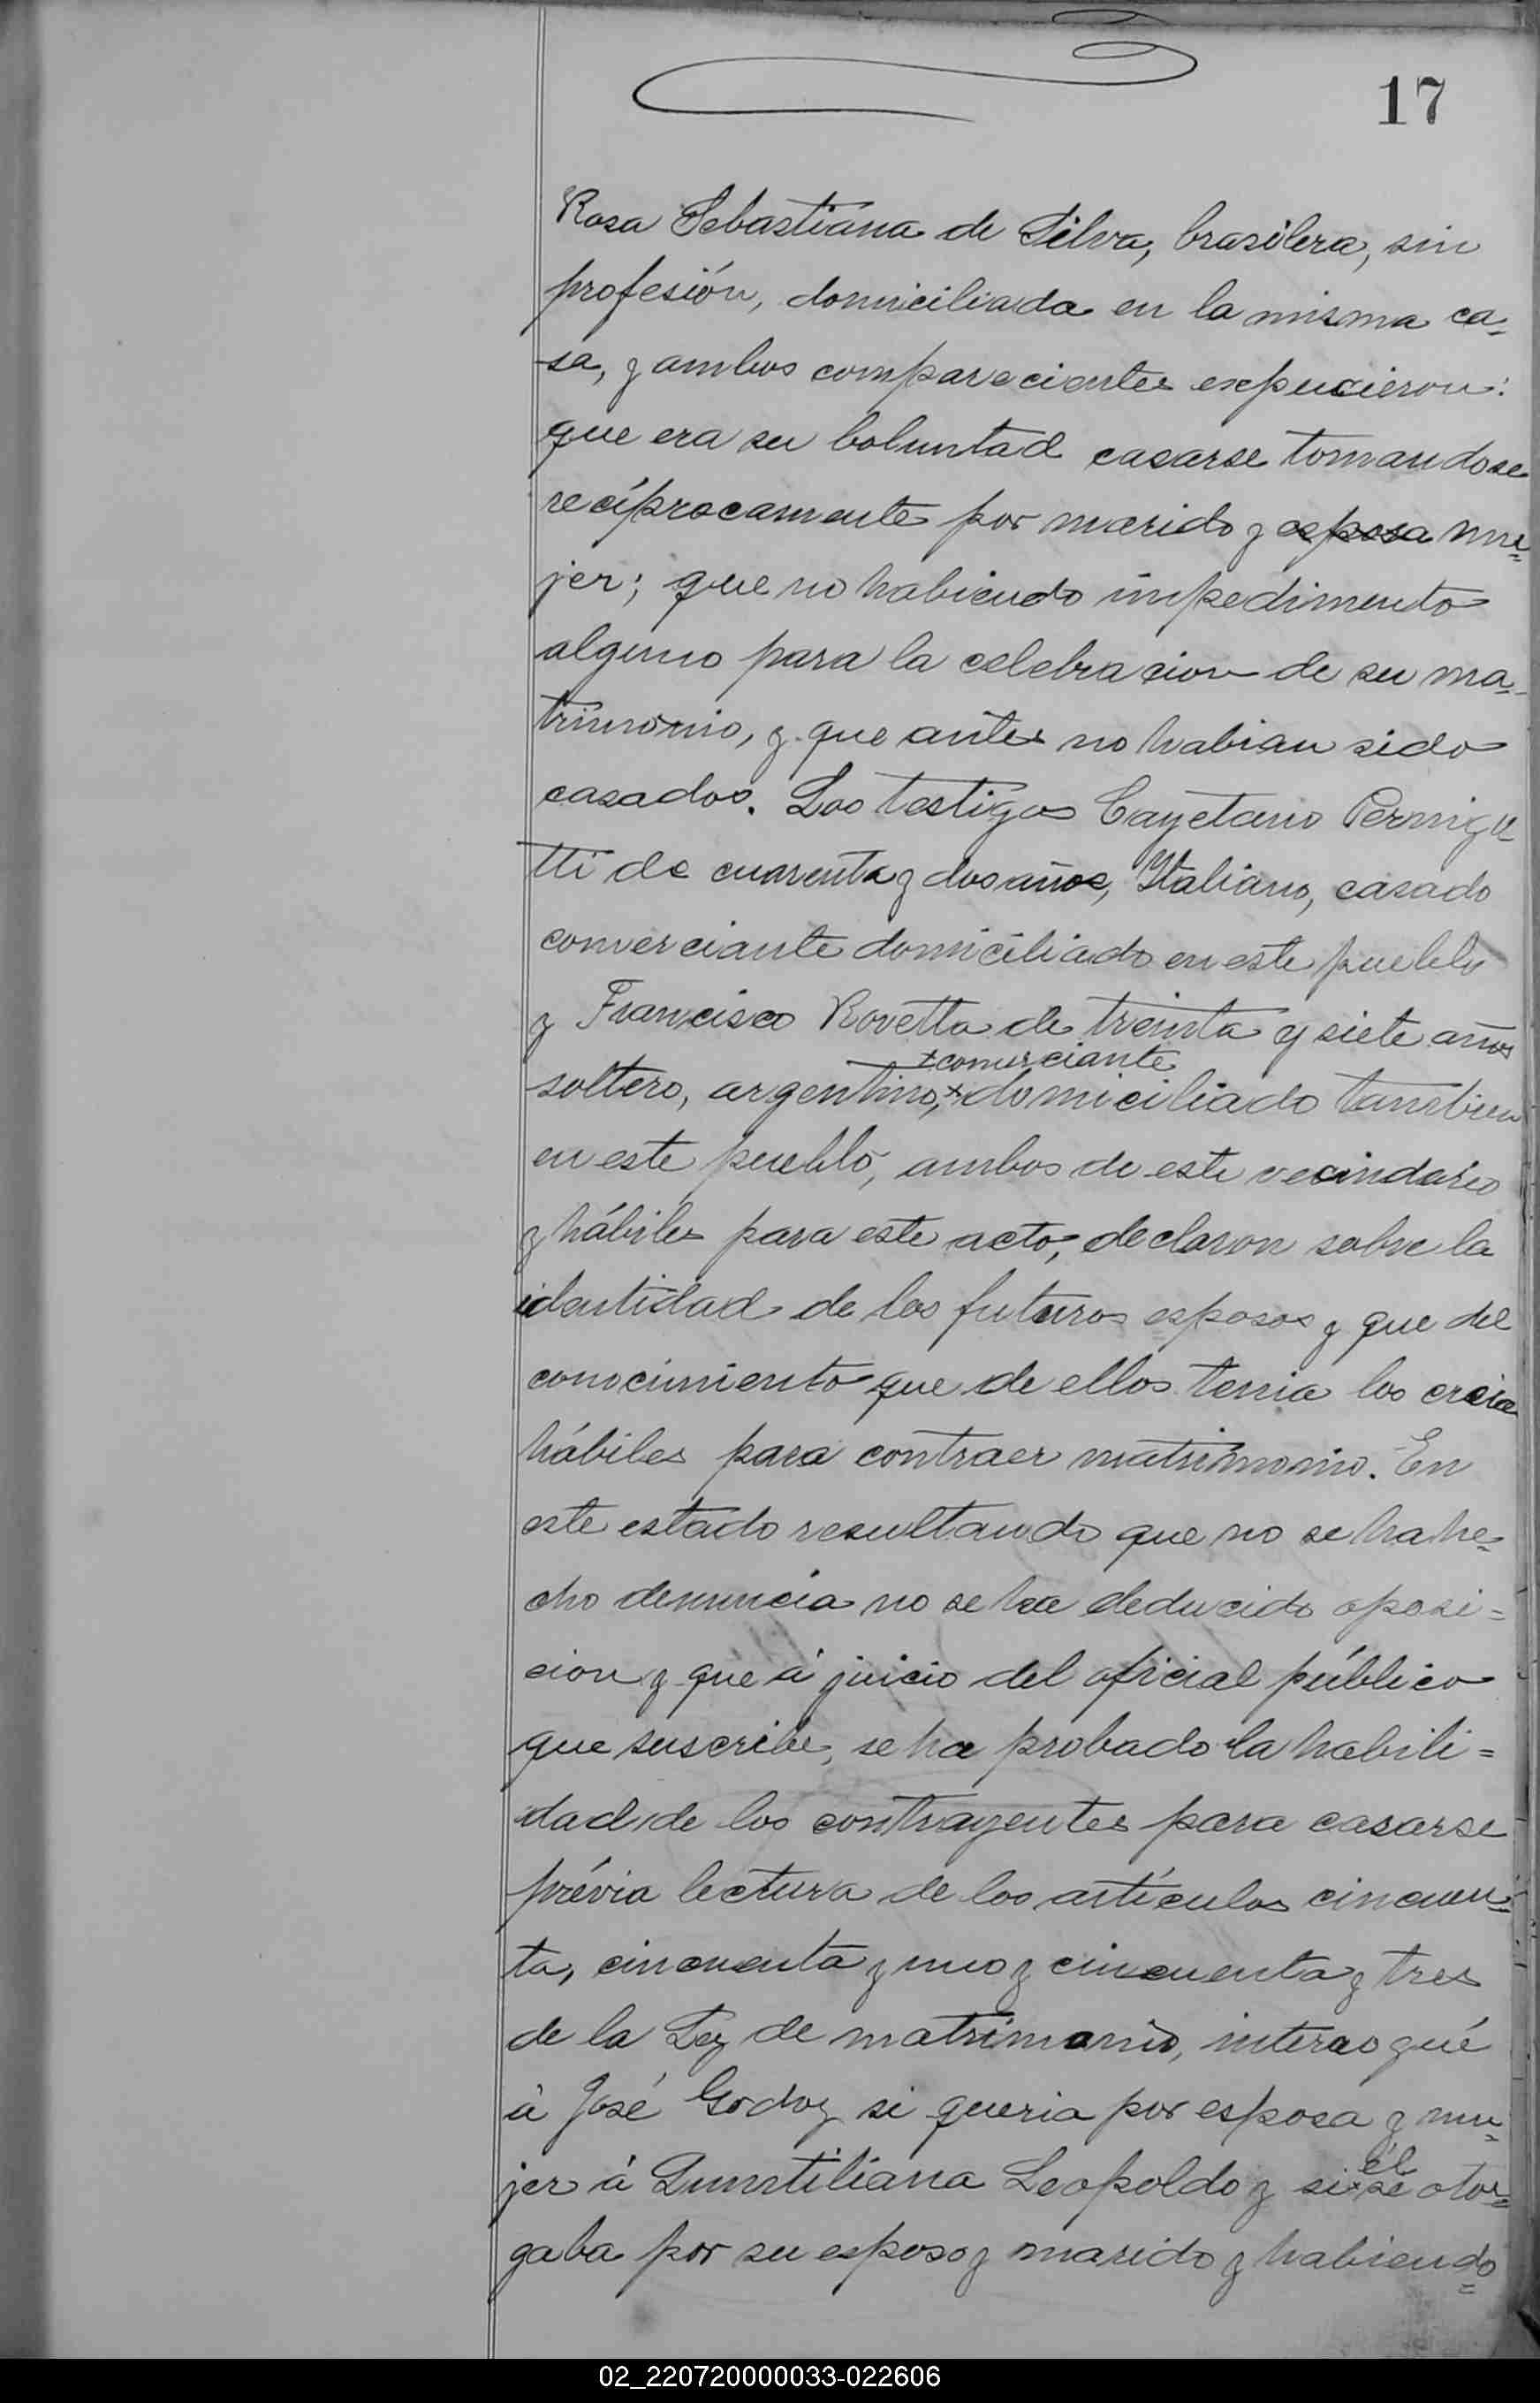 17
Rosa Sebastiana de Silva, brasilera, sin
profesión, domiciliada en la misma ca-
sa, y ambos comparecientes expucieron:
que era su boluntad casarse tomandose
recíprocamente por marido y esposa mu-
jer; que no habiendo impedimento
alguno para la celebracion de su ma-
trimonio, y que antes no habian sido
casados. Los testigos Cayetano Pernigo
tti de cuarenta y dos años, Italiano, casado
comerciante domiciliado en este pueblo
y Francisco Rovetta de treinta y siete años
+comerciante
soltero, argentino,+ domiciliado tambien
en este pueblo, ambos de este vecindario
y hábiles para este acto, declaron sobre la
identidad de los futuros esposos y que del
conocimiento que de ellos tenia los creia
hábiles para contraer matrimonio. En
este estado resultando que no se ha he-
cho denuncia no se ha deducido oposi=
cion y que á juicio del oficial público
que suscribe, se ha probado la habili=
dad de los contrayentes para casarse
prévia lectura de los artículos cincuen-
ta, cincuenta y uno y cincuenta y tres
de la Ley de matrimonio, interogué
á José Godoy si queria por esposa y mu-
jer á Quintiliana Leopoldo y si él se otor-
gaba por su esposo y marido y habiendo
02_220720000033-022606